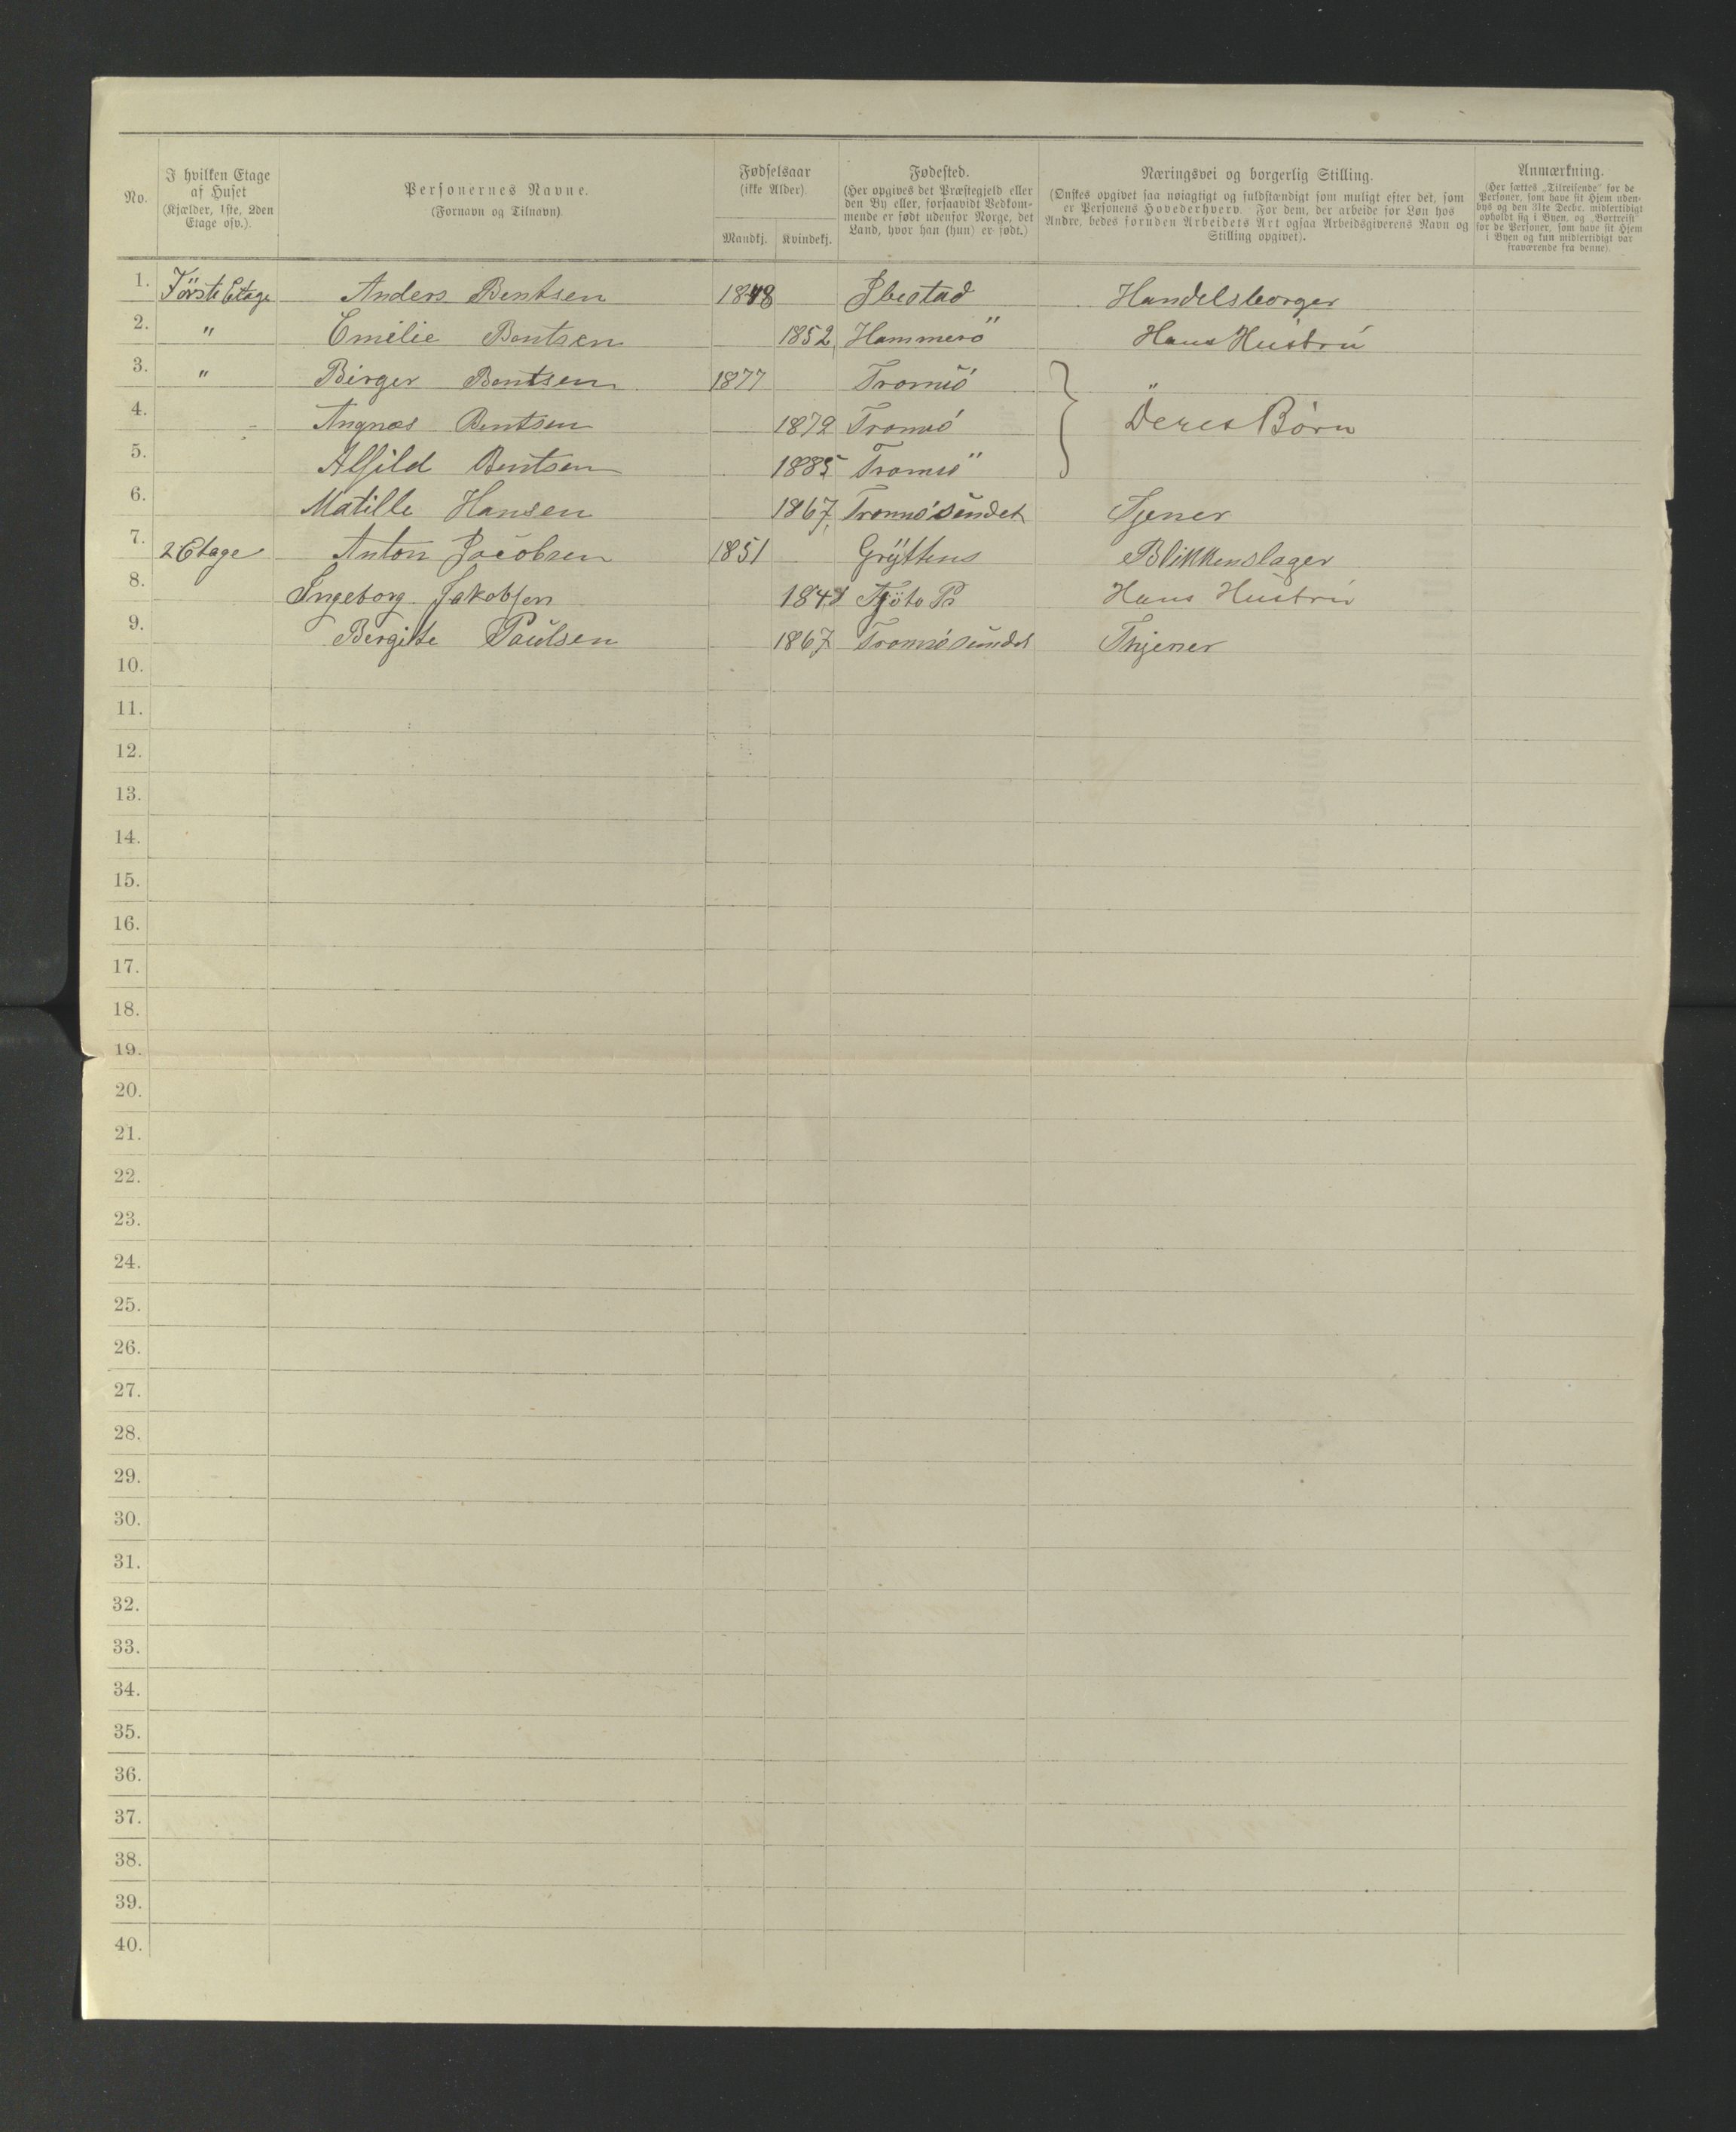 No.
I hvilken Etage
af Huset
(Kjælder, 1ste, 2den
Etage osv.).
Personernes Navne.
(Fornavn og Tilnavn).
Fødselsaar
(ikke Alder).
Mandkj. Kvindekj.
Fødested.
(Her opgives det Præstegjeld eller
den By eller, forsaavidt Vedkom-
mende er født udenfor Norge, det
Land, hvor han (hun) er født.)
Næringsvei og borgerlig Stilling.
(Ønskes opgivet saa nøiagtigt og fuldstændigt som muligt efter det, som
er Personens Hovederhverv. For dem, der arbeide for Løn hos
Andre, bedes foruden Arbeidets Art ogsaa Arbeidsgiverens Navn og
Stilling opgivet).
Anmærkning.
(Her sættes „Tilreisende" for de
Personer, som have sit Hjem uden-
bys og den 31te Decbr. midlertidigt
opholdt sig i Byen, og „Bortreist"
for de Personer, som have sit Hjem
i Byen og kun midlertidigt var
fraværende fra denne).
1. Förste Etage Anders Bentsen 1848 Ibestad Handelsborger
2. " Emilie Bentsen 1852 Hammerö Hans Hustru
3. " Birger Bentsen 1877 Tromsö "
4. Angnes Bentsen 1879 Tromsö Deres Børn
5. Alfild Bentsen 1885 Tromsö
6. Matille Hansen 1867 Tromsösundet Tjener
7. 2 Etage Anton Jacobsen 1851 Gryttens Blikkenslager
8. Ingeborg Jakobsen Tjöto Pr Hans Hustru
9. Bergitte Paulsen 1867 Tromsösundet Thjener
10.
11.
12.
13.
14.
15.
16.
17.
18.
19.
20.
21.
22.
23.
24.
25.
26.
27.
28.
29.
30.
31.
32.
33.
34.
35.
36.
37.
38.
39.
40.